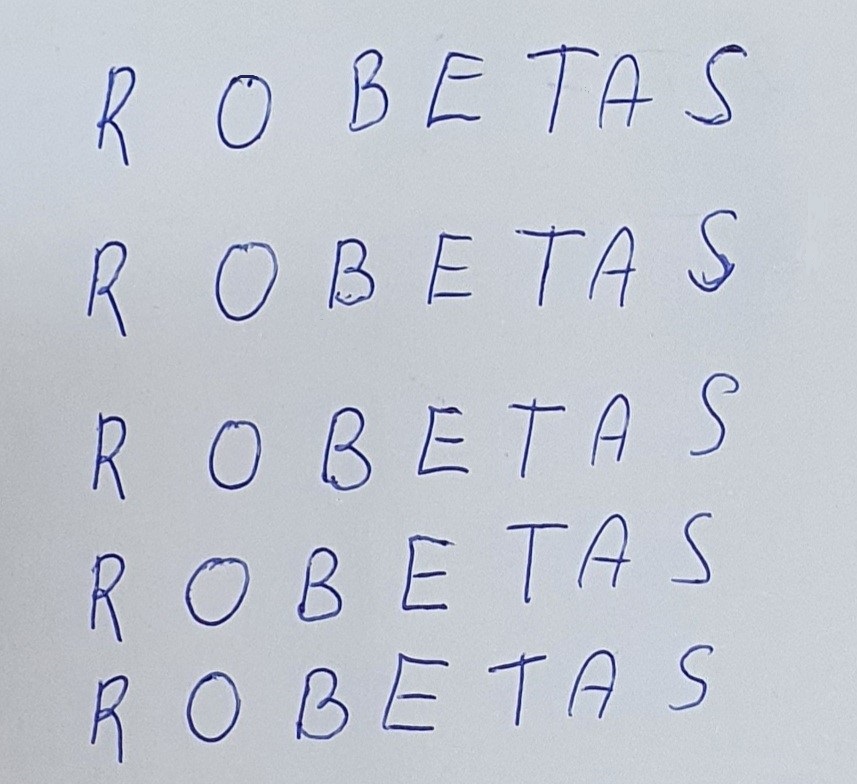 R O B E T A S
R O B E T A S
R O B E T A S
R O B E T A S
R O B E T A S